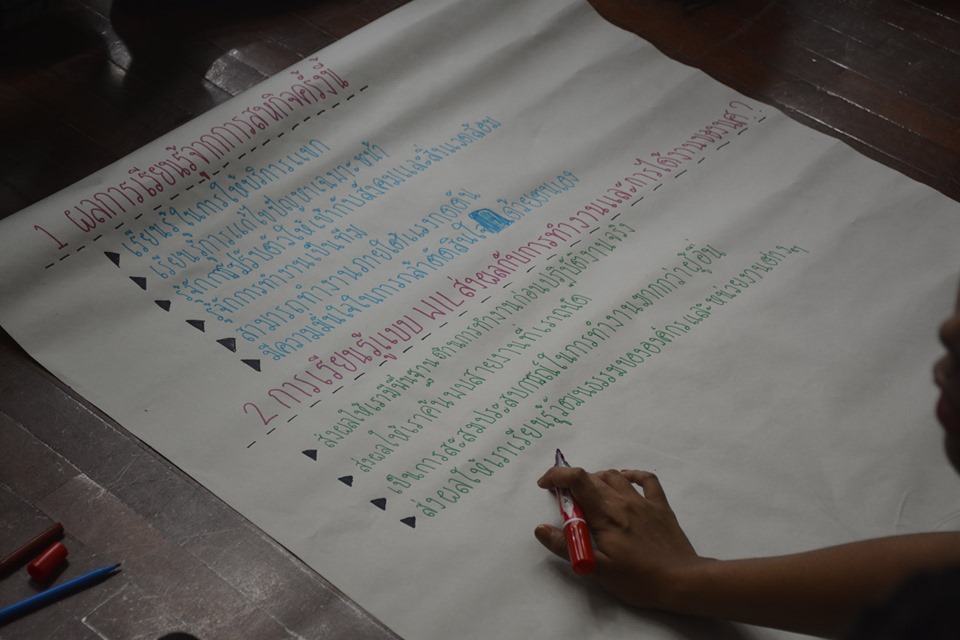 1 ผลการเรียนรู้จากการสหกิจครั้งนี้
เรียนรู้ในการให้บริการแขก
เรียนรู้การแก้ไขปัญหาเฉพาะหน้า
รู้จักปรับตัวให้เข้ากับสังคมและสิ่งแวดล้อม
รู้จักการทำงานเป็นทีม
สามารถทำงานภายใต้แรงกดดัน
มีความมั่นใจในการกล้าตัดสินใจ ด้วยตนเอง
2 การเรียนรู้แบบ WIL ส่งผลกับการทำงานและการได้งานของนศ ?
ส่งผลให้เรามีพื้นฐานด้านการทำงานก่อนปฏิบัติงานจริง
ส่งผลให้เราค้นพบสายงานที่เราถนัด
เป็นการสะสมประสบการณ์ในการทำงานมากกว่าผู้อื่น
ส่งผลให้เราเรียนรู้วัฒนธรรมขององค์กรและหน่วยงานต่างๆ